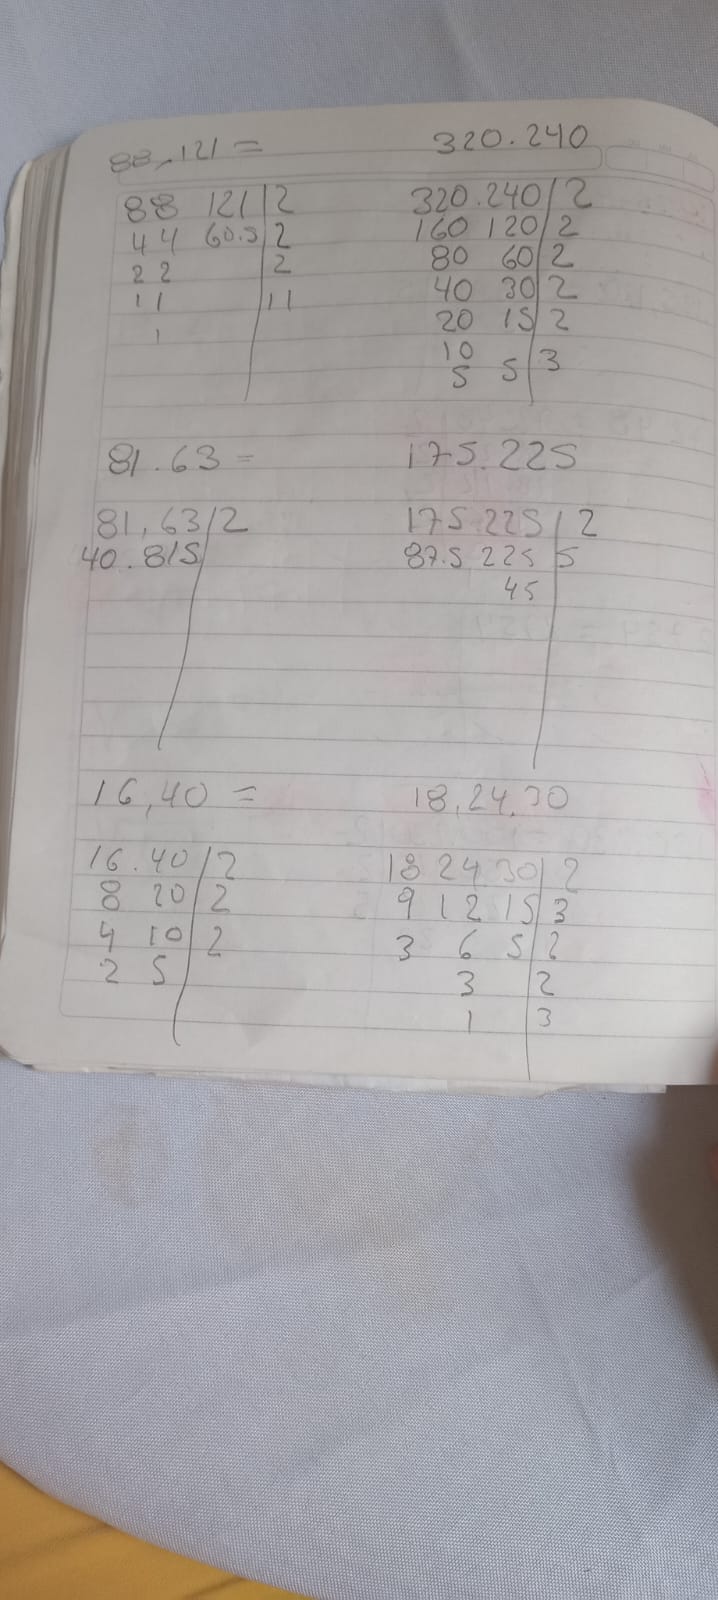 88,121 =
88 121 2
44 60.5 2
22 2
11 11
1
320.240
320.240 2
160 120 2
80 60 2
40 30 2
20 15 2
10
5 5 3
81.63 =
81,63 2
40.815
175.225
175 225 2
87.5 225 5
45
16,40 =
16.40 2
8 20 2
4 10 2
2 5
18,24,30
18 24 30 2
9 12 15 3
3 6 5 2
3 2
1 3